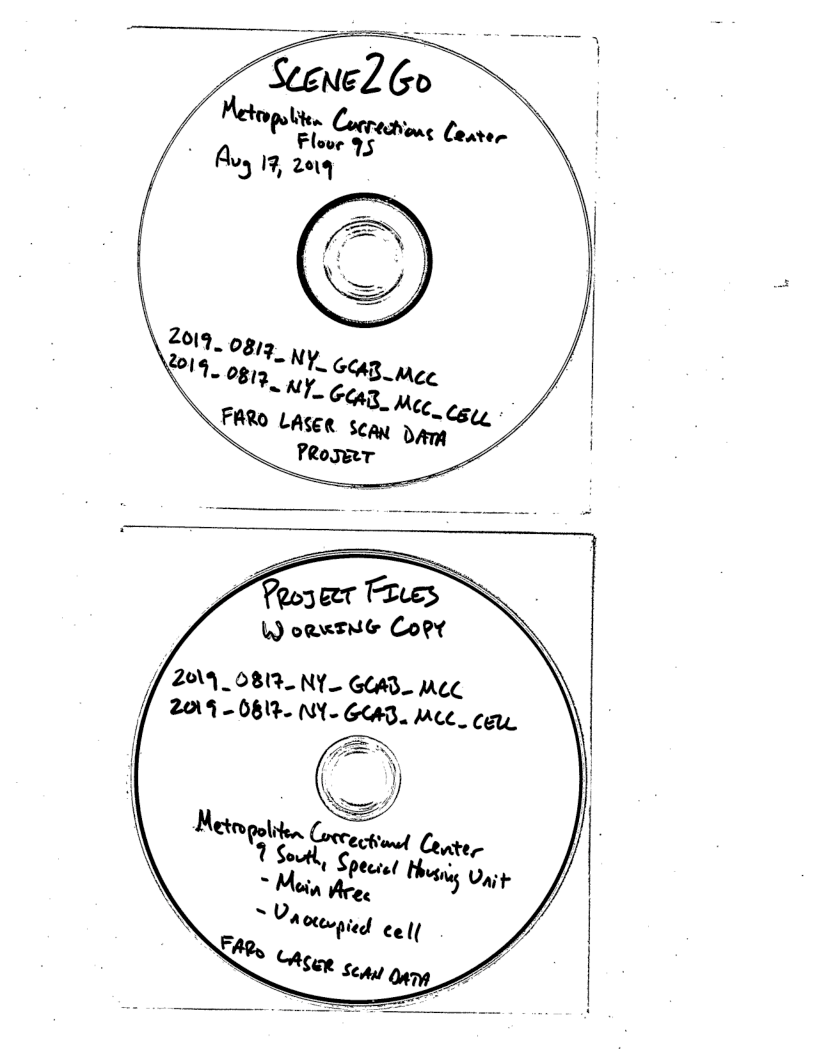 SCENE2GO
Metropolitan Corrections Center
Floor 9S
Aug 17, 2019
2019_0817_NY_GCAB_MCC
2019_0817_NY_GCAB_MCC_CELL
FARO LASER SCAN DATA
PROJECT
PROJECT FILES
WORKING COPY
2019_0817_NY_GCAB_MCC
2019_0817_NY_GCAB_MCC_CELL
Metropolitan Correctional Center
9 South, Special Housing Unit
- Main Area
- Unoccupied cell
FARO LASER SCAN DATA